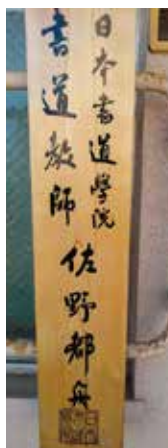 日本書道學院
書道教師 佐野都舟